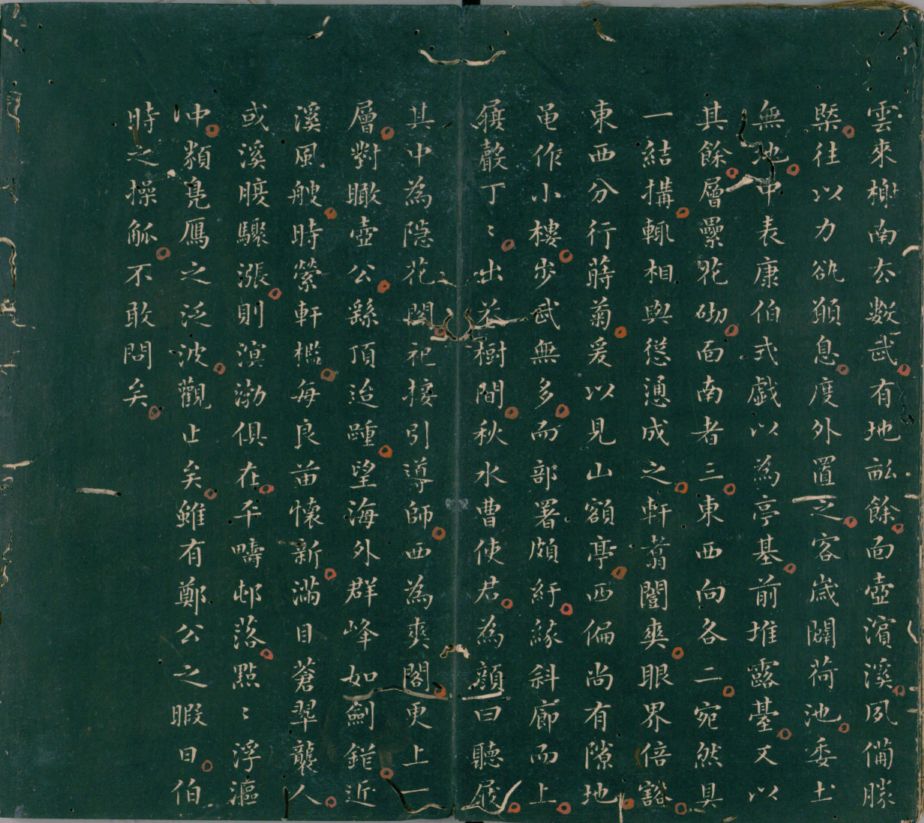 雲來榭南去數武有地畝餘面壺濱溪夙備勝
槩往以力欲願息度外置之客歲闢荷池委土
無地中表康伯式戲以為亭基前堆露臺又以
其餘層纍花砌面南者三東西向各二宛然具
一結搆輒相與慫慂成之軒翥闓爽眼界倍豁
東西分行蒔菊爰以見山額亭西偏尚有隙地
黽作小樓步武無多而部署頗紆緣斜廊而上
屐聲丁〻出花樹間秋水曹使君為顏曰聽屐
其中為隱花閣祀接引導師西為爽閣更上一
層對瞰壺公繇頂迨踵望海外群峰如劍錯近
溪風艘時縈軒檻每良苗懷新滿目蒼翠襲人
或溪暖驟漲則溟渤俱在平疇邨落點〻浮漚
沖類鳧鴈之泛波觀止矣雖有鄭公之暇日伯
時之操觚不敢問矣